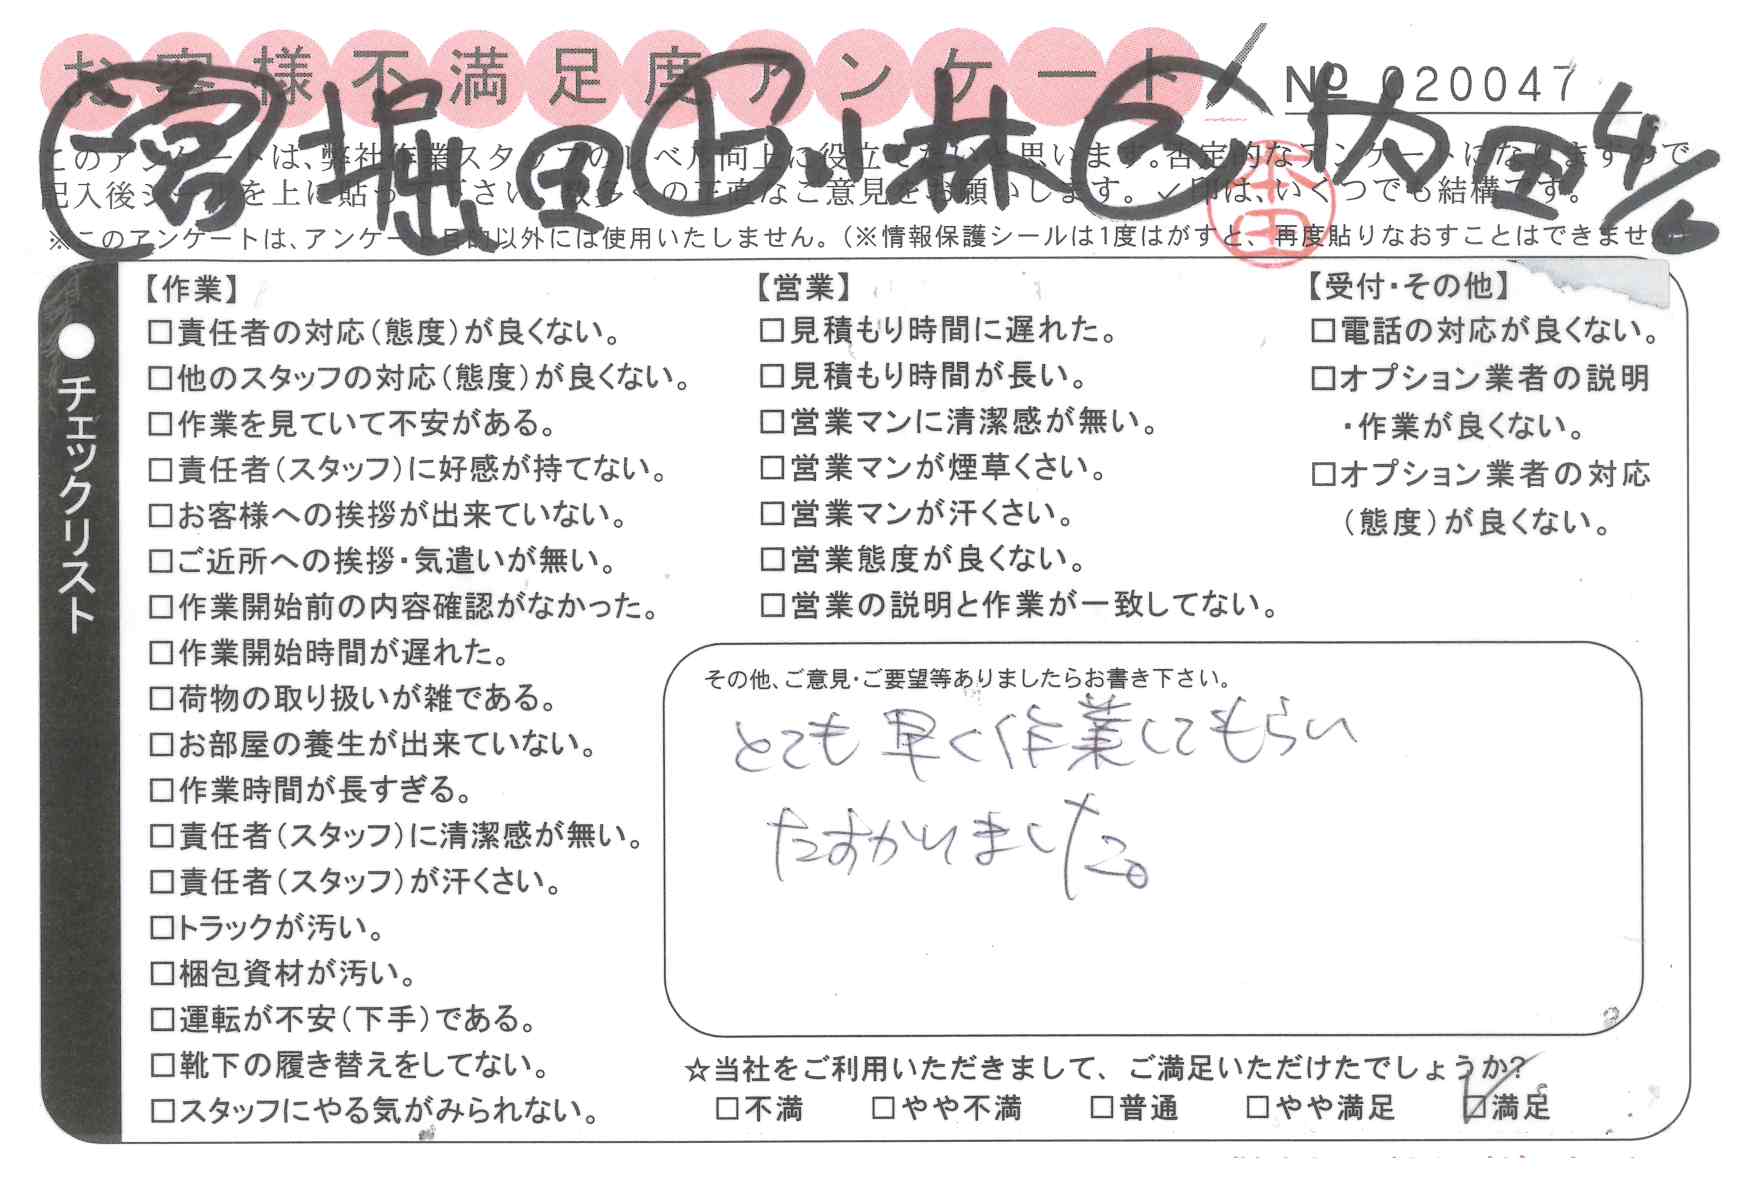 お客様不満足度アンケート
№ 020047
宮 堀田 小林 内田 4/6
このアンケートは、弊社作業スタッフのレベル向上に役立てたいと思います。否定的なアンケートになりますので
記入後シールを上に貼って下さい。数多くの正直なご意見をお願いします。✓印は、いくつでも結構です。
※このアンケートは、アンケート目的以外には使用いたしません。(※情報保護シールは1度はがすと、再度貼りなおすことはできません)
本田
●チェックリスト
【作業】
□責任者の対応(態度)が良くない。
□他のスタッフの対応(態度)が良くない。
□作業を見ていて不安がある。
□責任者(スタッフ)に好感が持てない。
□お客様への挨拶が出来ていない。
□ご近所への挨拶・気遣いが無い。
□作業開始前の内容確認がなかった。
□作業開始時間が遅れた。
□荷物の取り扱いが雑である。
□お部屋の養生が出来ていない。
□作業時間が長すぎる。
□責任者(スタッフ)に清潔感が無い。
□責任者(スタッフ)が汗くさい。
□トラックが汚い。
□梱包資材が汚い。
□運転が不安(下手)である。
□靴下の履き替えをしてない。
□スタッフにやる気がみられない。
【営業】
□見積もり時間に遅れた。
□見積もり時間が長い。
□営業マンに清潔感が無い。
□営業マンが煙草くさい。
□営業マンが汗くさい。
□営業態度が良くない。
□営業の説明と作業が一致してない。
【受付・その他】
□電話の対応が良くない。
□オプション業者の説明
・作業が良くない。
□オプション業者の対応
(態度)が良くない。
その他、ご意見・ご要望等ありましたらお書き下さい。
とても早く作業してもらい
たすかりました。
☆当社をご利用いただきまして、ご満足いただけたでしょうか?
□不満 □やや不満 □普通 □やや満足 ☑満足